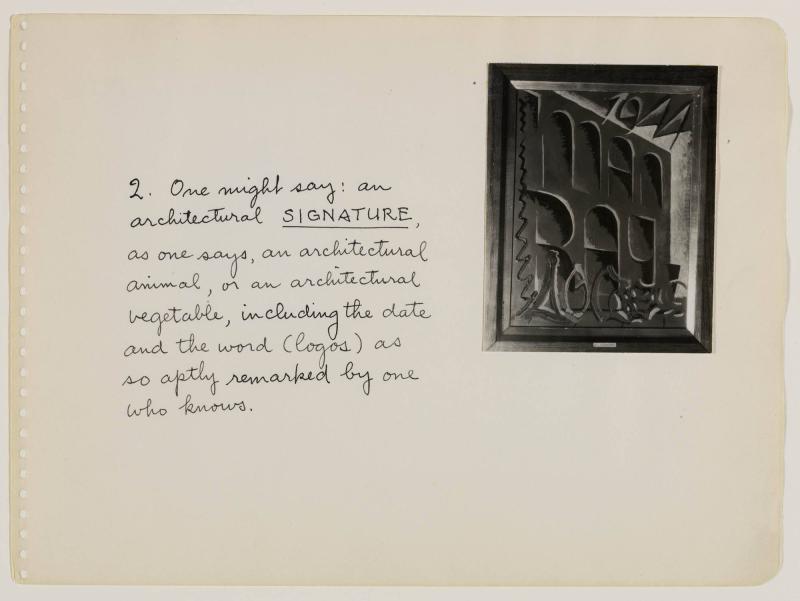 2. One might say: an
architectural SIGNATURE,
as one says, an architectural
animal, or an architectural
vegetable, including the date
and the word (logos) as
so aptly remarked by one
who knows.
1911
MAN
RAY